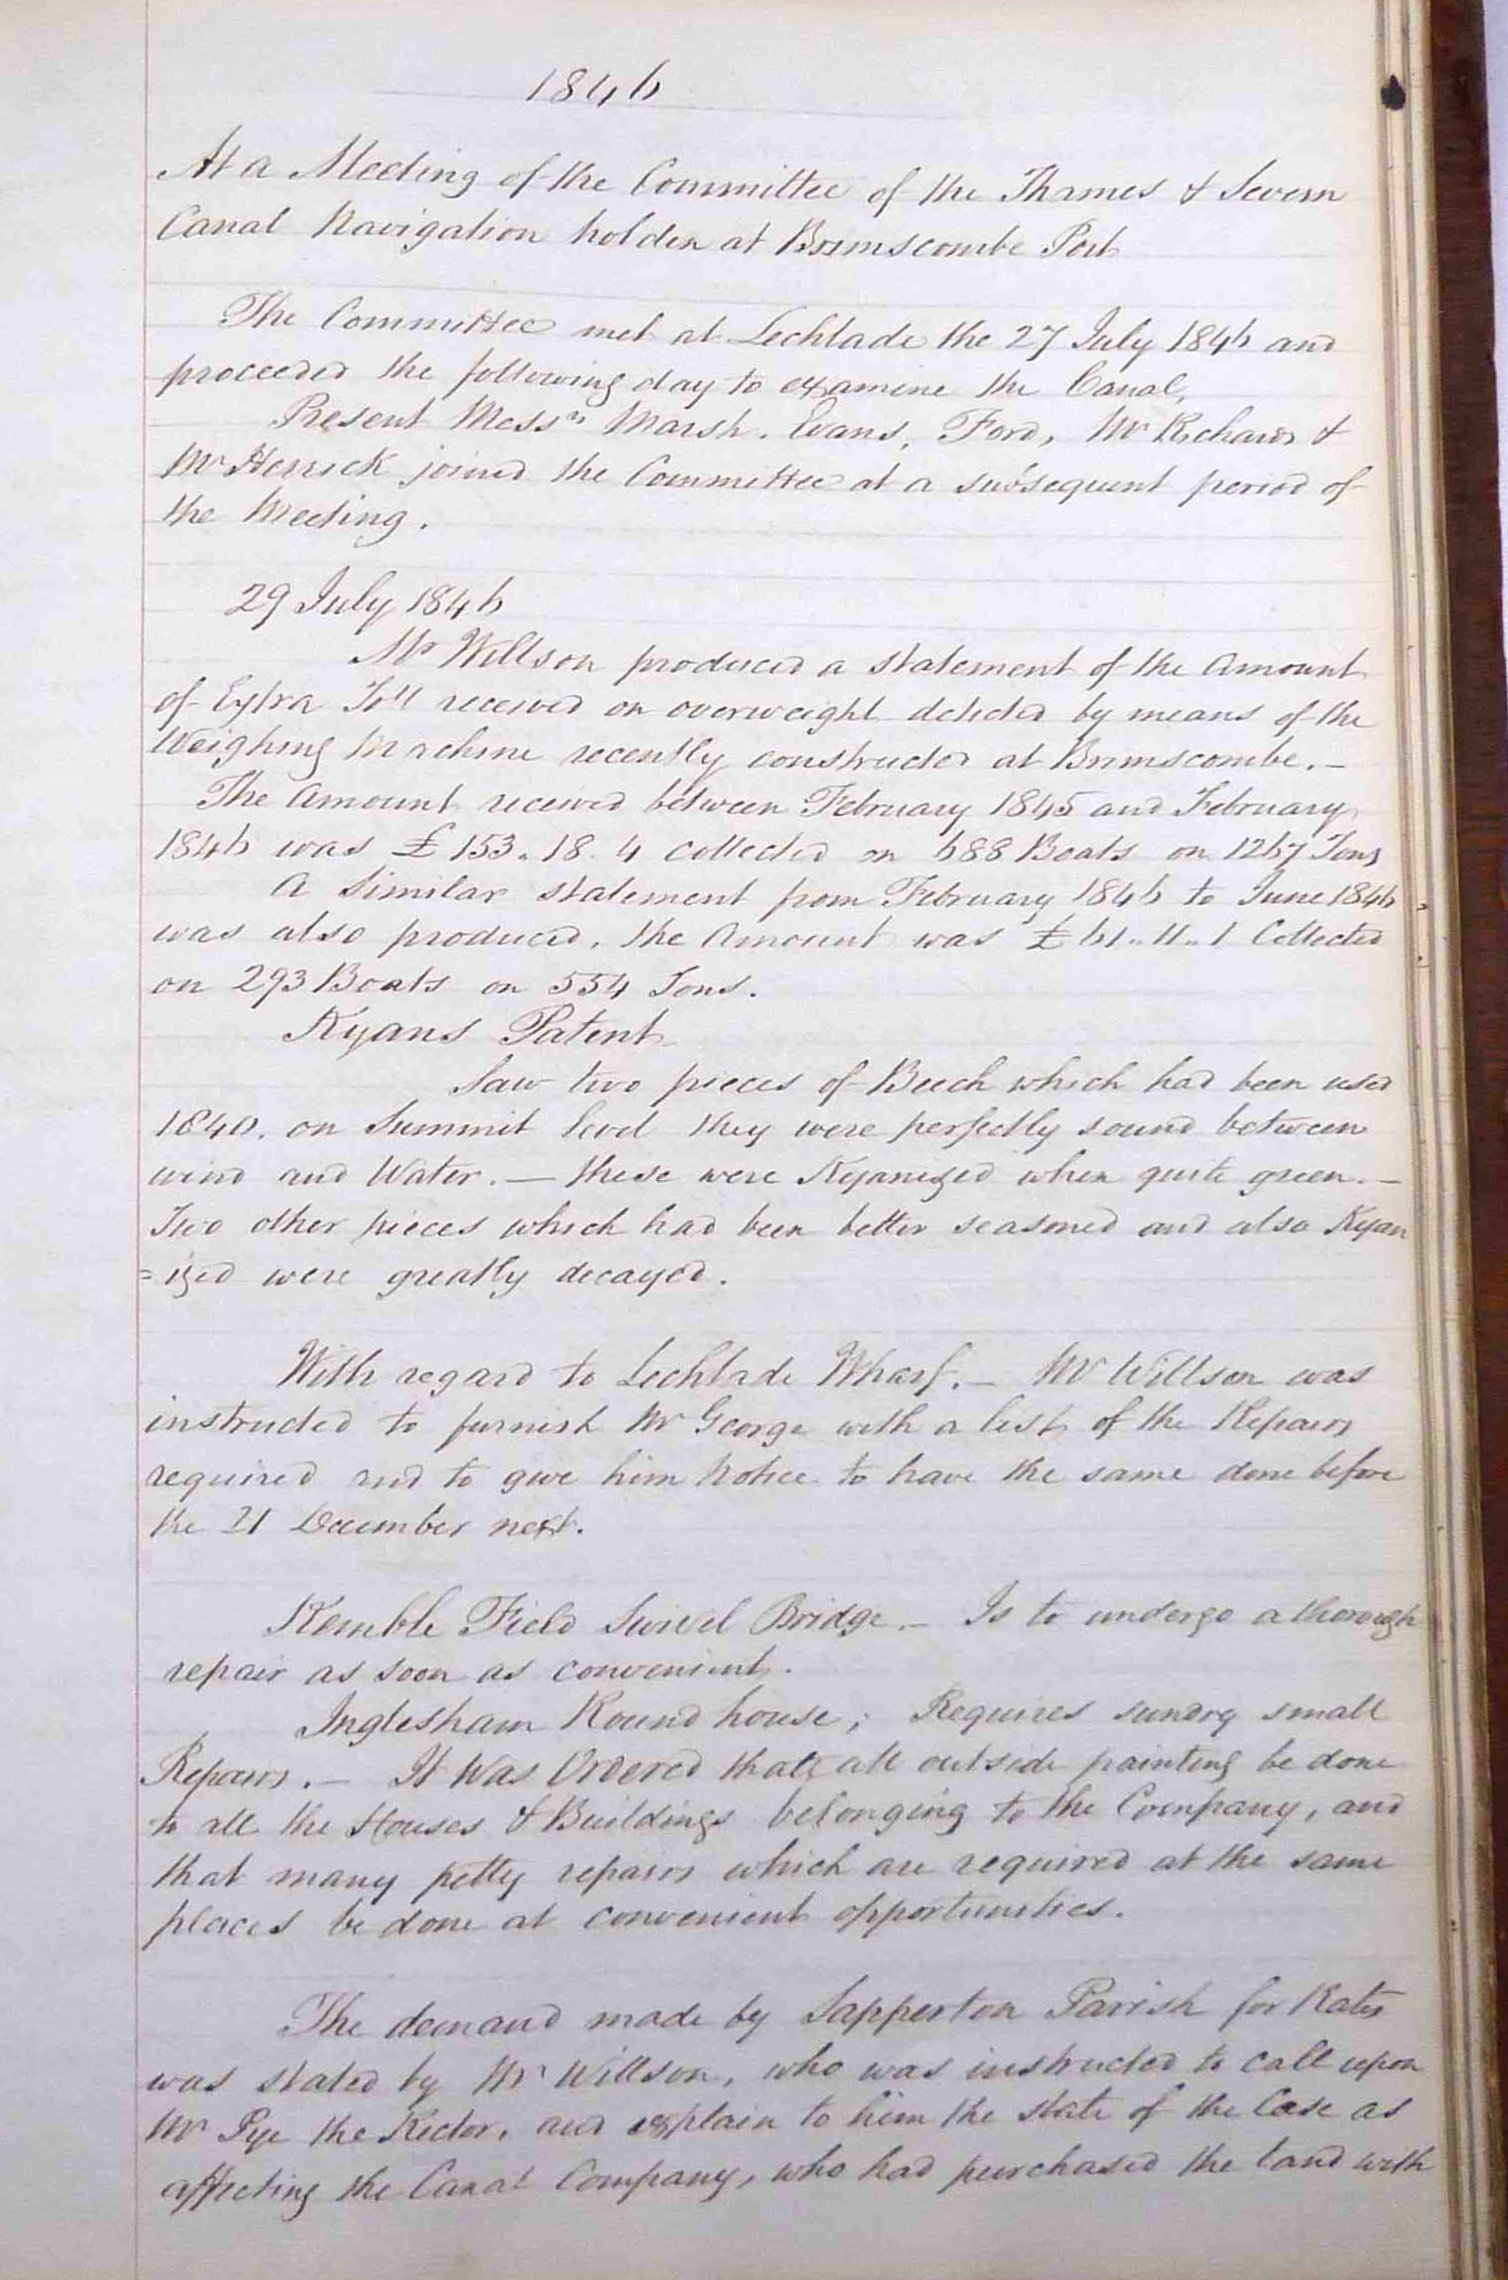 1846
At a Meeting of the Committee of the Thames & Severn
Canal Navigation holden at Brimscombe Port
The Committee met at Lechlade the 27 July 1846 and
proceeded the following day to examine the Canal,
Present Messrs Marsh. Evans, Ford, Mr Richards &
Mr Herrick joined the Committee at a subsequent period of
the Meeting.
29 July 1846
Mr Willson produced a statement of the Amount
of Extra Toll received on overweight detected by means of the
Weighing Machine recently constructed at Brimscombe. –
The Amount received between February 1845 and February
1846 was £153.18.4 collected on 688 Boats on 1267 Tons
A Similar statement from February 1846 to June 1846
was also produced, the Amount was £61..11..1 Collected
on 293 Boats on 554 Tons.
Kyans Patent
Saw two pieces of Beech which had been used
1840. on Summit level they were perfectly sound between
wind and Water. — these were Kyanized when quite green. –
Two other pieces which had been better seasoned and also Kyan
=ized were greatly decayed.
With regard to Lechlade Wharf. – Mr Willson was
instructed to furnish Mr George with a list of the Repairs
required and to give him Notice to have the same done before
the 21 December next.
Kemble Field Swivel Bridge. – Is to undergo a thorough
repair as soon as convenient.
Inglesham Round house; Requires sundry small
Repairs. – It Was Ordered that all outside painting be done
to all the Houses & Buildings belonging to the Company, and
that many petty repairs which are required at the same
places be done at convenient opportunities.
The demand made by Sapperton Parish for Rates
was stated by Mr Willson, who was instructed to call upon
Mr Pye the Rector, and explain to him the state of the Case as
affecting the Canal Company, who had purchased the land with